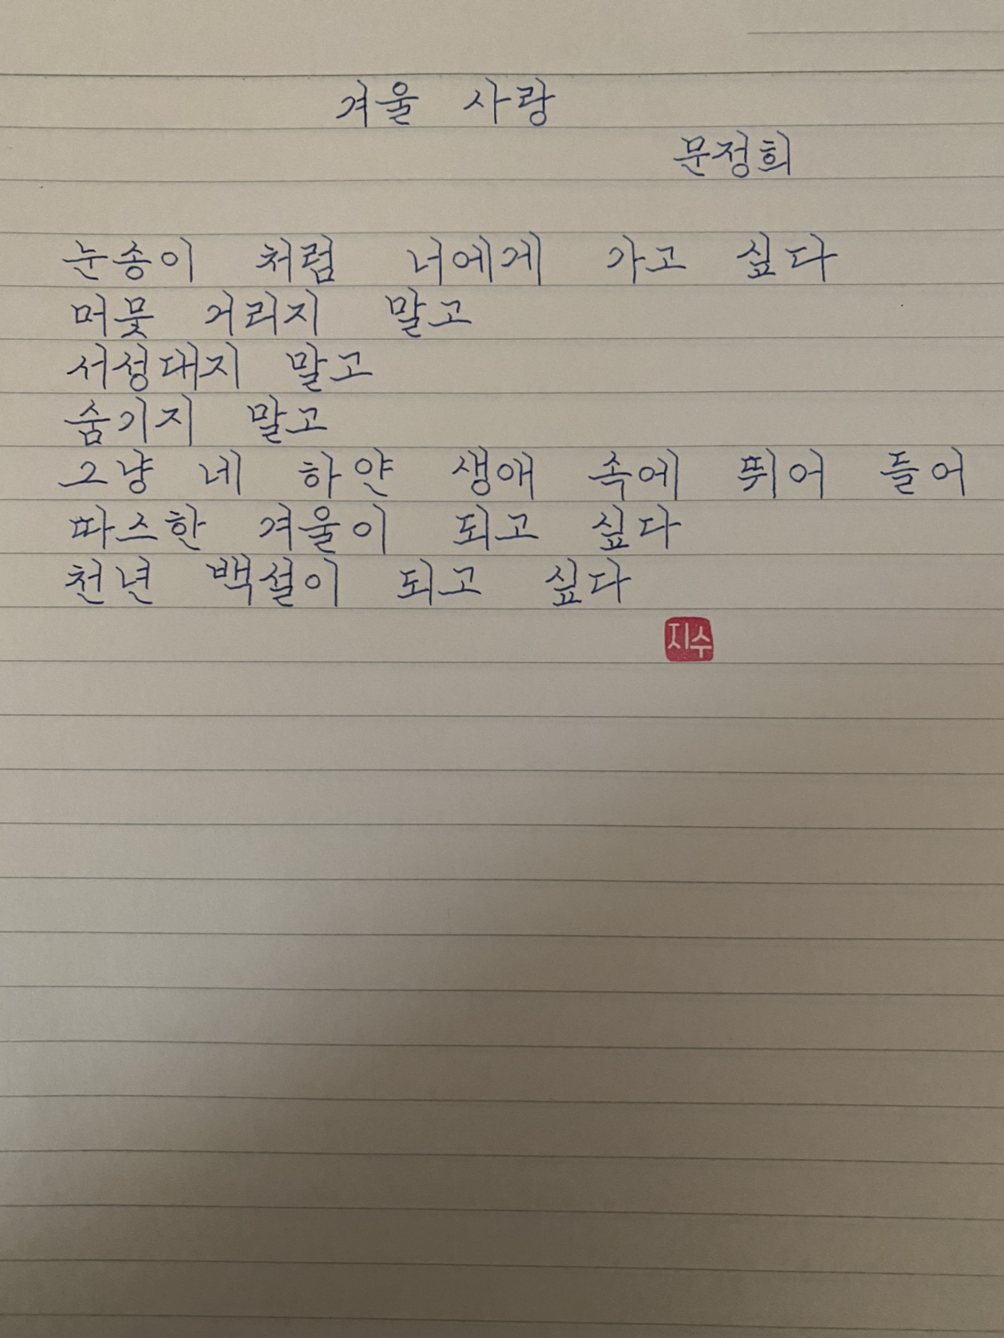 겨울 사랑
문정희
눈송이 처럼 너에게 가고 싶다
머뭇 거리지 말고
서성대지 말고
숨기지 말고
그냥 네 하얀 생애 속에 뛰어 들어
따스한 겨울이 되고 싶다
천년 백설이 되고 싶다
지수